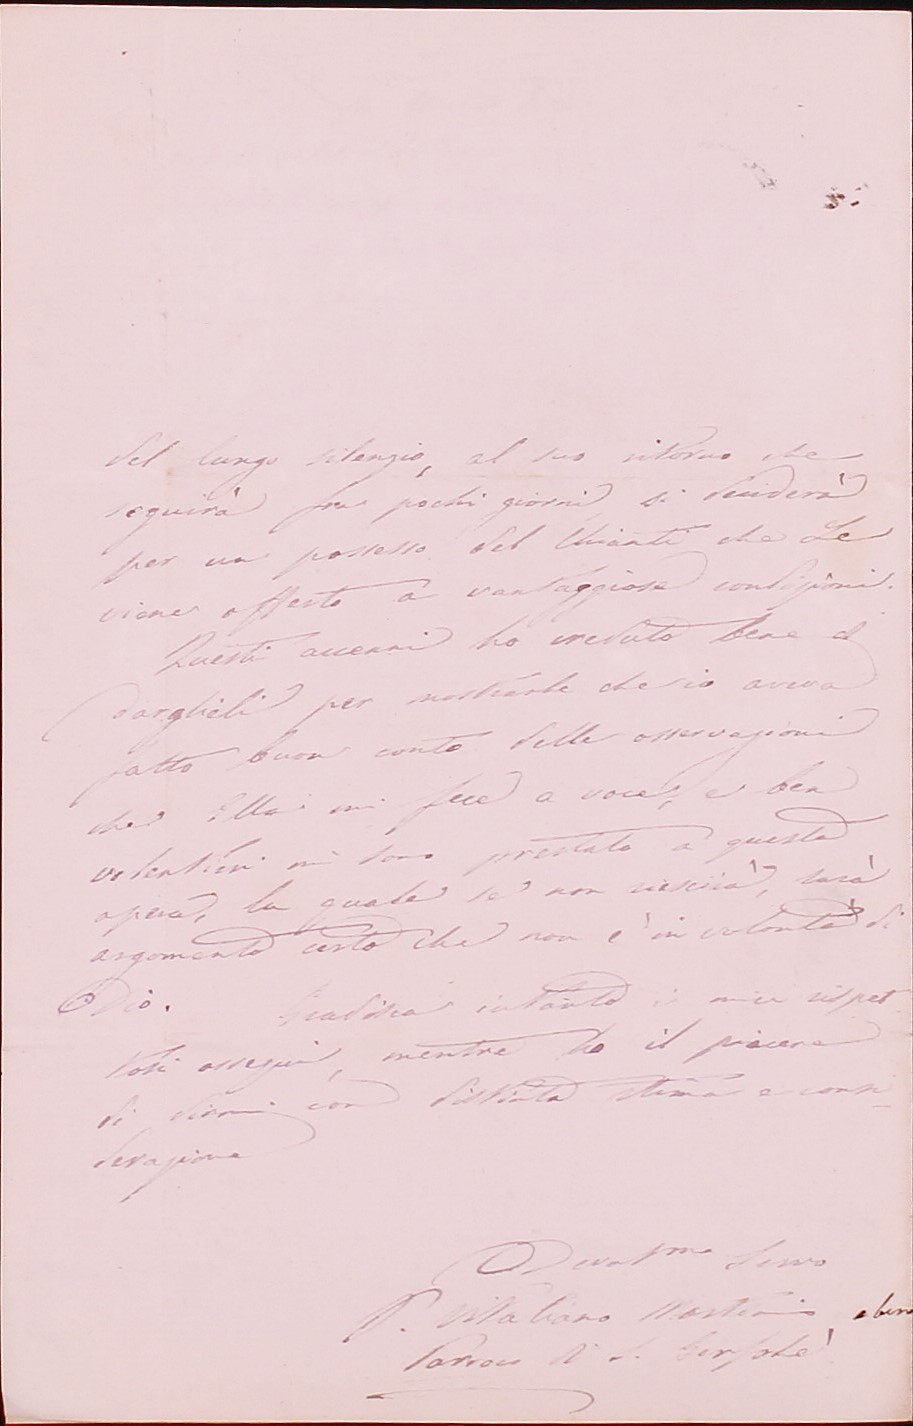 del lungo silenzio, al suo ritorno che
seguirà fra pochi giorni, si deciderà
per un possesso del Chianti che Le
viene offerto a vantaggiose condizioni.
Questi accenni ho creduto bene di
darglieli per mostrarle che io aveva
fatto buon conto delle osservazioni
che Ella mi fece a voce, e ben
volentieri mi sono prestato a questa
opera, la quale se non riescirà, sarà
argomento certo che non è in volontà di
Dio. Gradisca intanto i miei rispet
tosi ossequi, mentre ho il piacere
di dirmi con distinta stima e consi-
derazione
Devotmo Servo
P. Vitaliano
Parroco di S.